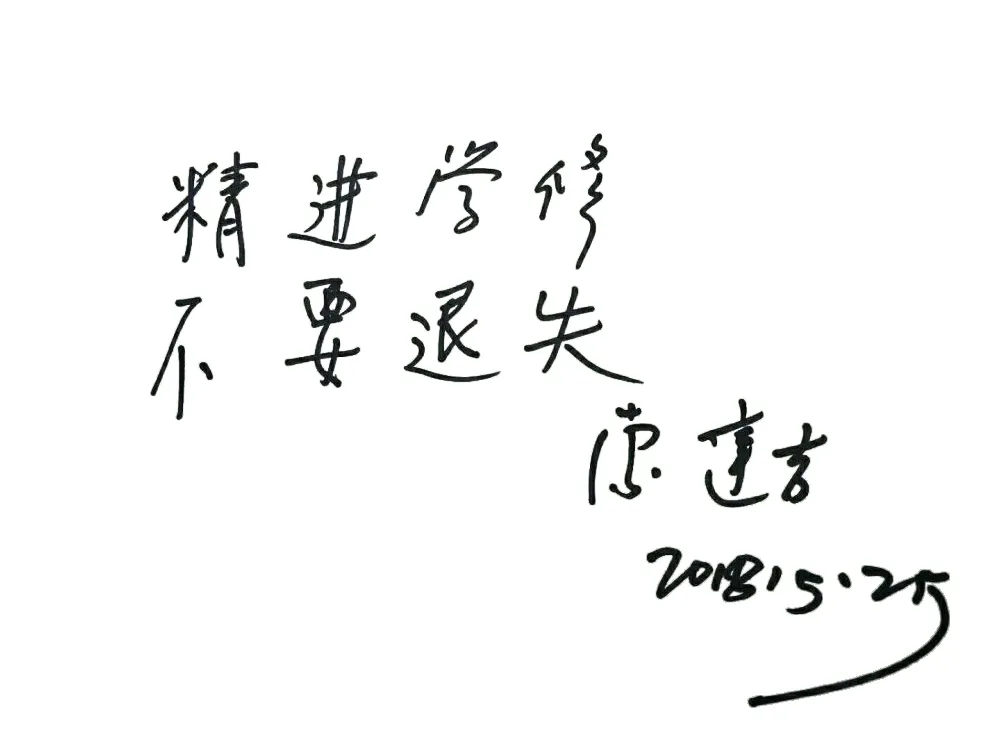 精进学修
不要退失
索达吉
2018.5.25